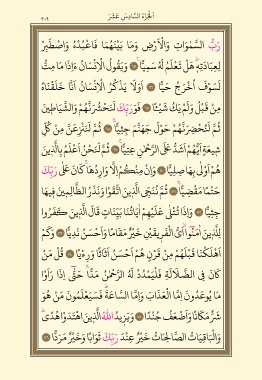 اَلْجُزْءُ السَّادِسُ عَشَرَ ٣٠٩
رَبُّ السَّمٰوَاتِ وَالْاَرْضِ وَمَا بَيْنَهُمَا فَاعْبُدْهُ وَاصْطَبِرْ
لِعِبَادَتِهِ هَلْ تَعْلَمُ لَهُ سَمِيًّا ۞ وَيَقُولُ الْاِنْسَانُ ءَاِذَا مَا مِتُّ
لَسَوْفَ اُخْرَجُ حَيًّا ۞ اَوَلَا يَذْكُرُ الْاِنْسَانُ اَنَّا خَلَقْنَاهُ
مِنْ قَبْلُ وَلَمْ يَكُ شَيْئًا ۞ فَوَرَبِّكَ لَنَحْشُرَنَّهُمْ وَالشَّيَاطِينَ
ثُمَّ لَنُحْضِرَنَّهُمْ حَوْلَ جَهَنَّمَ جِثِيًّا ۞ ثُمَّ لَنَنْزِعَنَّ مِنْ كُلِّ
شِيعَةٍ اَيُّهُمْ اَشَدُّ عَلَى الرَّحْمٰنِ عِتِيًّا ۞ ثُمَّ لَنَحْنُ اَعْلَمُ بِالَّذِينَ
هُمْ اَوْلٰى بِهَا صِلِيًّا ۞ وَاِنْ مِنْكُمْ اِلَّا وَارِدُهَا كَانَ عَلٰى رَبِّكَ
حَتْمًا مَقْضِيًّا ۞ ثُمَّ نُنَجِّى الَّذِينَ اتَّقَوْا وَنَذَرُ الظَّالِمِينَ فِيهَا
جِثِيًّا ۞ وَاِذَا تُتْلٰى عَلَيْهِمْ اٰيَاتُنَا بَيِّنَاتٍ قَالَ الَّذِينَ كَفَرُوا
لِلَّذِينَ اٰمَنُوا اَىُّ الْفَرِيقَيْنِ خَيْرٌ مَقَامًا وَاَحْسَنُ نَدِيًّا ۞ وَكَمْ
اَهْلَكْنَا قَبْلَهُمْ مِنْ قَرْنٍ هُمْ اَحْسَنُ اَثَاثًا وَرِءْيًا ۞ قُلْ مَنْ
كَانَ فِى الضَّلَالَةِ فَلْيَمْدُدْ لَهُ الرَّحْمٰنُ مَدًّا حَتّٰى اِذَا رَاَوْا
مَا يُوعَدُونَ اِمَّا الْعَذَابَ وَاِمَّا السَّاعَةَ فَسَيَعْلَمُونَ مَنْ هُوَ
شَرٌّ مَكَانًا وَاَضْعَفُ جُنْدًا ۞ وَيَزِيدُ اللّٰهُ الَّذِينَ اهْتَدَوْا هُدًى
وَالْبَاقِيَاتُ الصَّالِحَاتُ خَيْرٌ عِنْدَ رَبِّكَ ثَوَابًا وَخَيْرٌ مَرَدًّا ۞